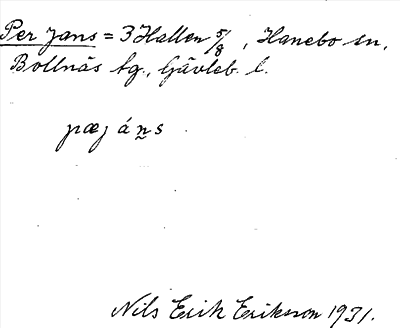 Per Jans = 3 Hallen 5/8, Hanebo sn,
Bollnäs tg., Gävleb. l.
pæj áṉs
Nils Erik Eriksson 1931.